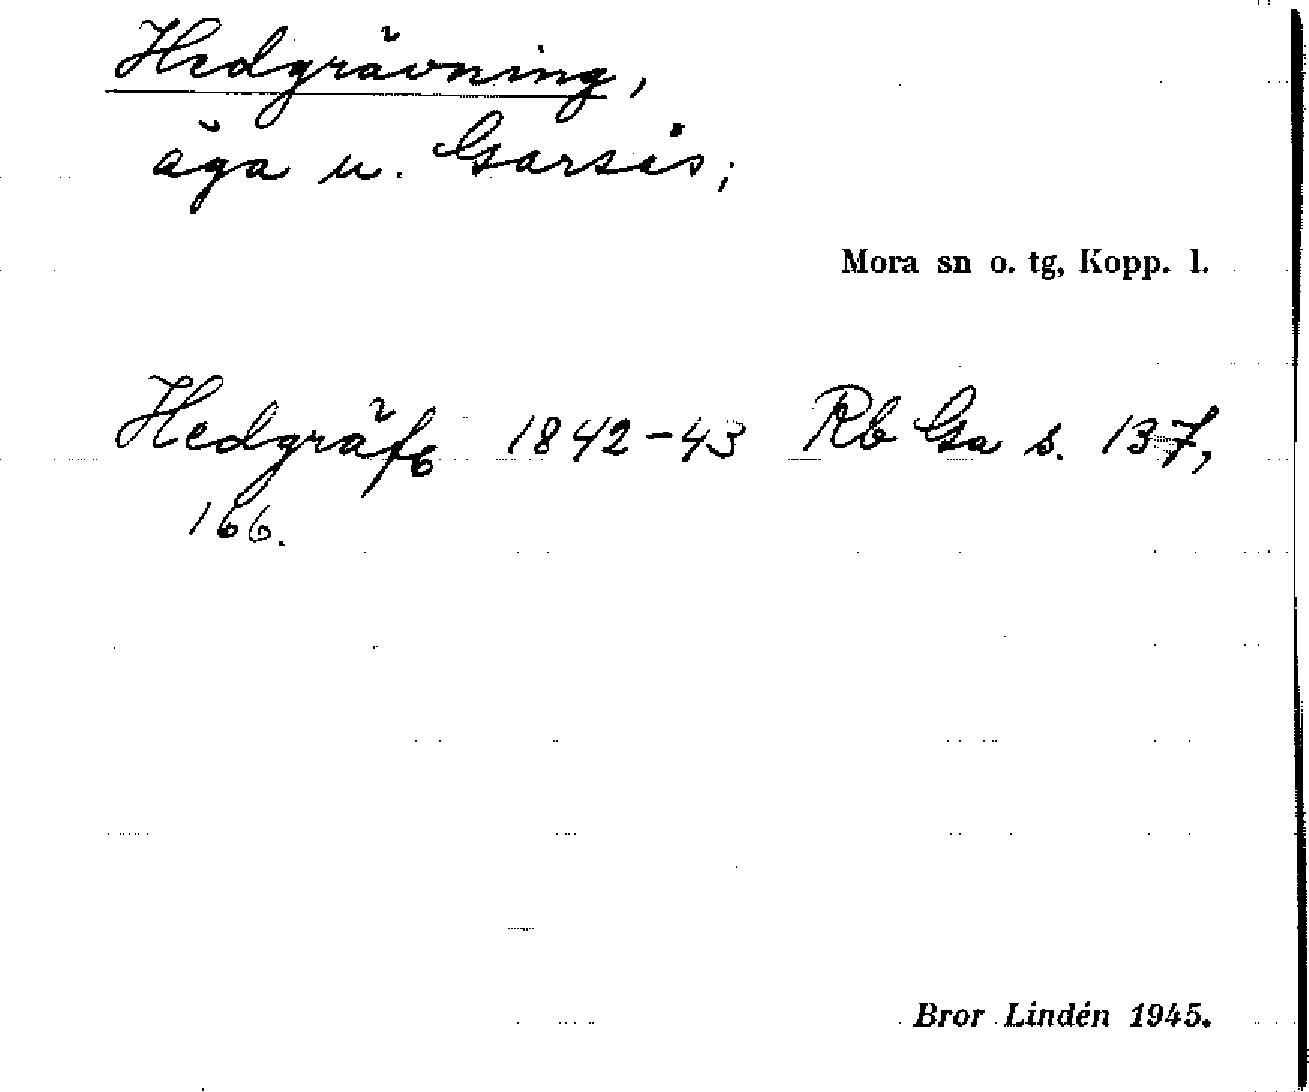 Hedgrävning,
äga u. Garsås;
Mora sn o. tg, Kopp. l.
Hedgräfs 1842-43 Rb Ga s. 137,
166.
Bror Lindén 1945.